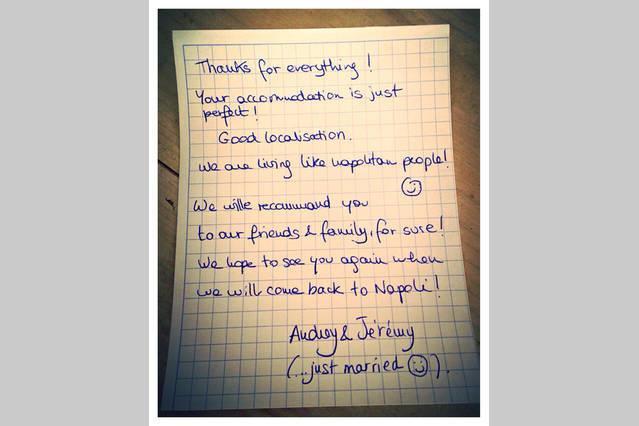 Thanks for everything !
Your accomodation is just
perfect !
Good localisation.
We are living like napolitan people!
We wille recommand you
to our friends & family, for sure!
We hope to see you again when
we will come back to Napoli !
Audrey & Jérémy
(...just married ☺).